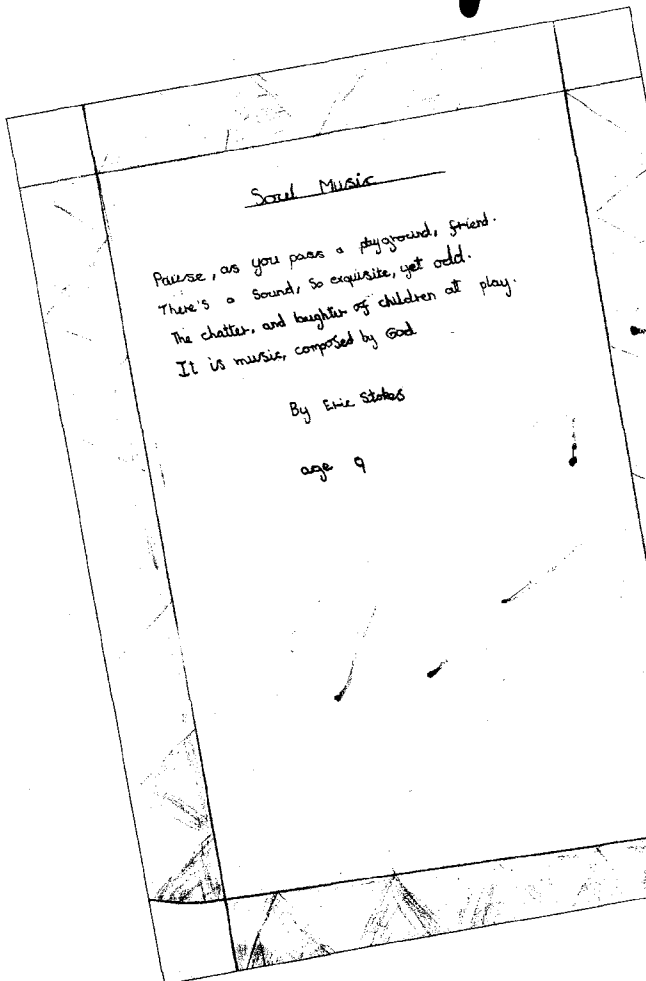 Soul Music
Pause, as you pass a playground, friend.
There's a Sound, So exquisite, yet odd.
The chatter, and laughter of children at play.
It is music, composed by God
By Eric Stokes
age 9